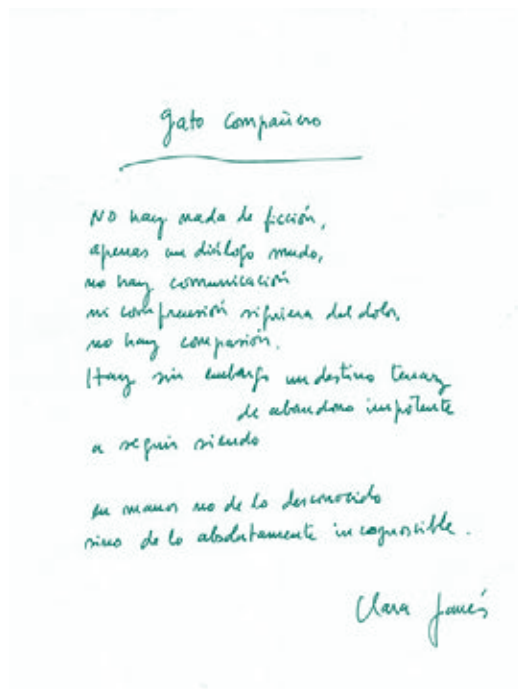 gato compañero
NO hay nada de ficción,
apenas un diálogo mudo,
no hay comunicación
ni comprensión siquiera del dolor,
no hay compasión.
Hay sin embargo un destino tenaz
de abandono impotente
a seguir siendo
en manos no de lo desconocido
sino de lo absolutamente incognoscible.
Clara Janés